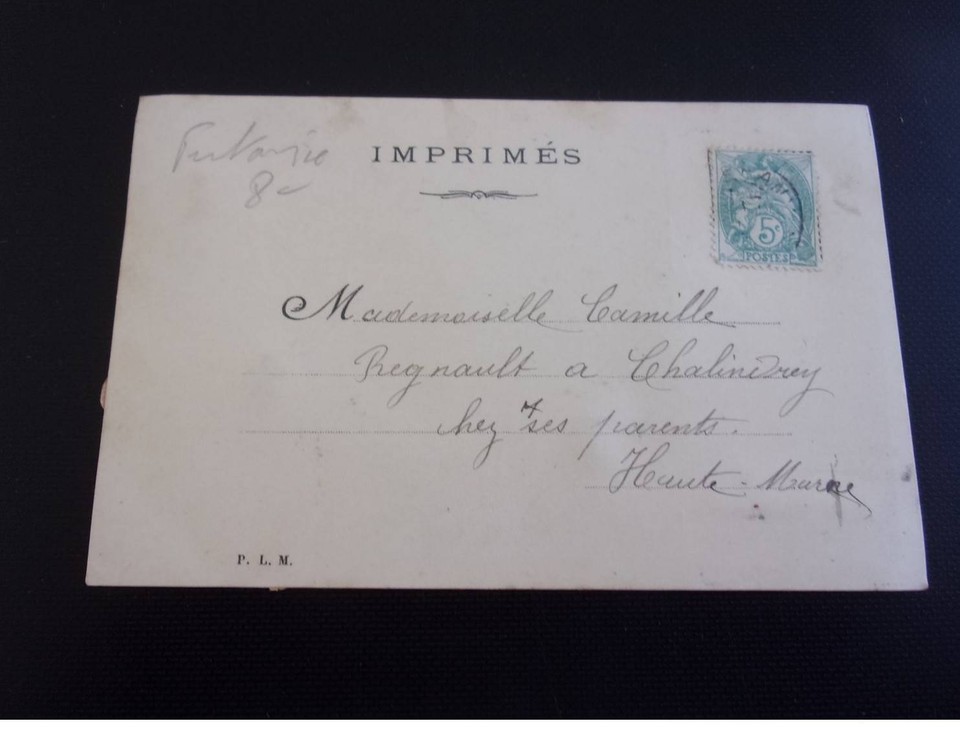 8
IMPRIMÉS
5c
POSTES
Mademoiselle Camille
Regnault a Chalindrey
chez ses parents.
Haute-Marne
P. L. M.